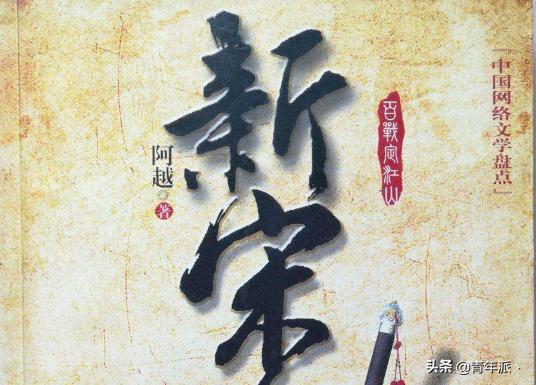 『中国网络文学盘点』
百戰定江山
新宋
阿越◎著
头条 @青年派·